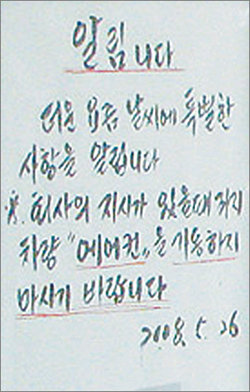 알림니다
더운 요즘 날씨에 특별한
사항을 알립니다
※. 회사의 지시가 있을때 까지
차량 "에에컨„을 가동하지
마시기 바랍니다
2008. 5. 26